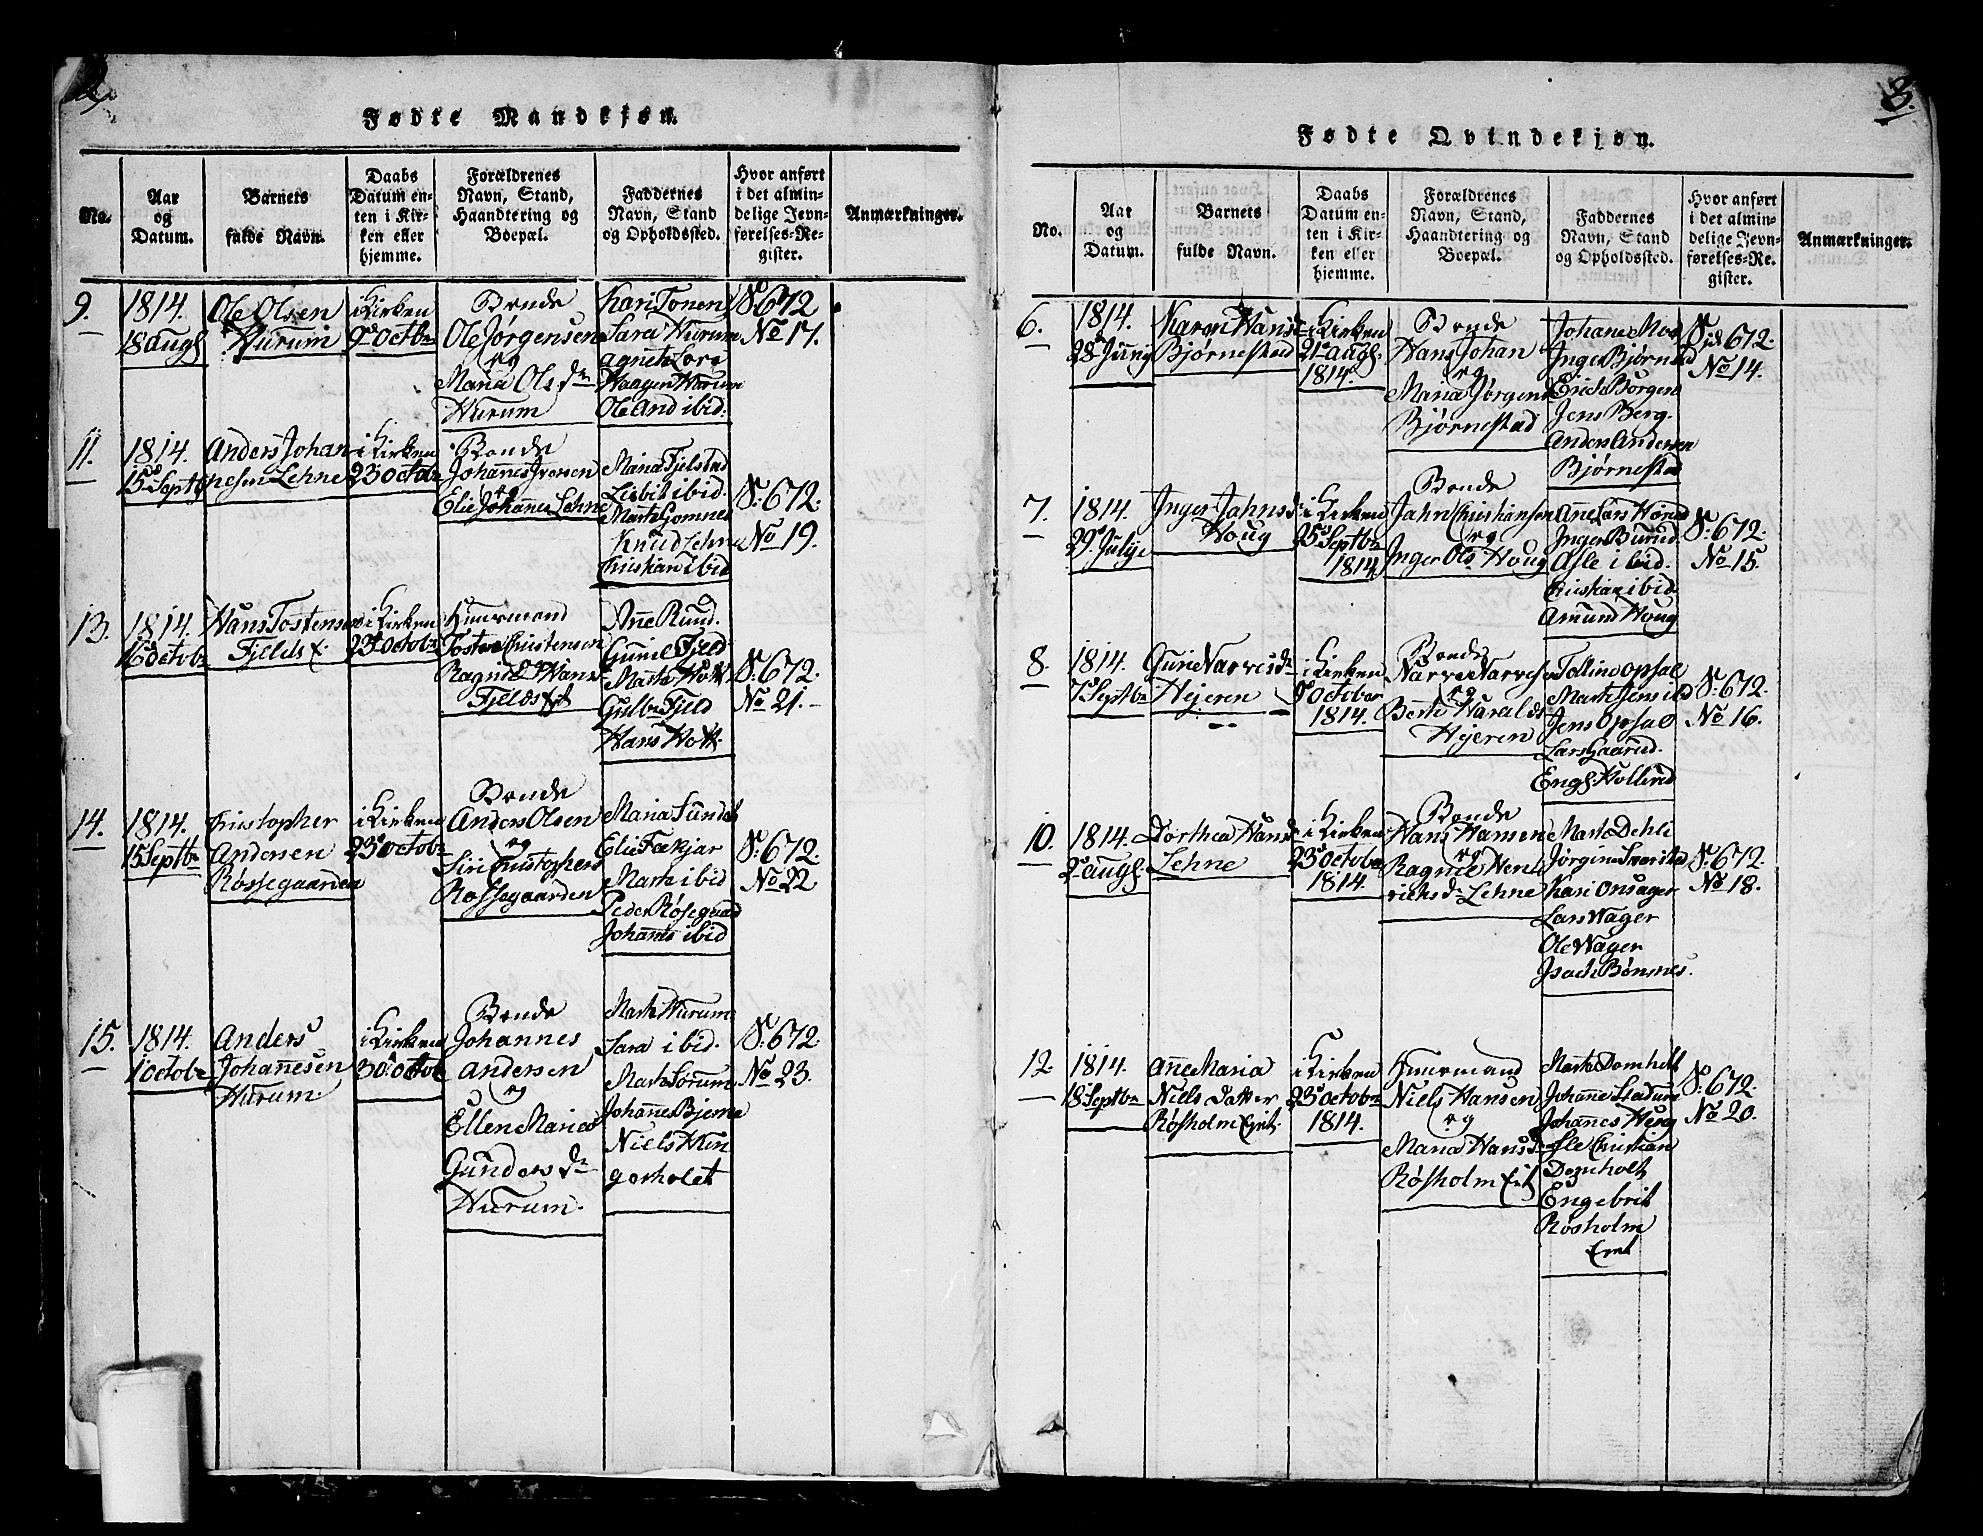 2.
Fødte Mandkjøn.
No.
Aar
og
Datum.
Barnets
fulde Navn.
Daabs
Datum en-
ten i Kir-
ken eller
hjemme.
Forældrenes
Navn, Stand,
Haandtering og
Boepæl.
Faddernes
Navn, Stand
og Opholdssted.
Hvor anført
i det almin-
delige Jevn-
førelses-Re-
gister.
Anmærkninger.
9.
1814.
18 augl
Ole Olsen
Hurum
i Kirken
9de octbr
Bonde
Ole Jørgensen
og
Maria Ols Dr
Hurum
Kari Tonen
Sara Hurum
agnethe Lore
Haagen Hurum
Ole And ibid.
S: 672
No 17.
11.
1814.
15 Septbr
Anders Johan
nesen Lehne
i Kirken
23 octobr
Bonde
Johannes Iversen
og
Elie Johannes Lehne
Maria Fjelstad
Lisbit ibid.
Marte Gomnes
Knud Lehne
Christian ibid
S: 672.
No 19.
13.
1814.
16 octobr
Hans Tostensen
Fjelds
i Kirken
23 octobr
Huusmand
Tosten Christensen
Ragnild Hans
Fjelds
Anne Rund.
Gunild Fjeld
Marte Holt
Gulbr Fjeld
Hans Holt
S: 672.
No 21.
14.
1814.
15 Septbr
Christopher
Andersen
Røssegaarden
i Kirken
23 octobr
Bonde
Anders Olsen
og
Siri Christophers
Røssegaarden
Maria Sundet
Elie Fækjar
Marte ibid
Peder Røsegaard
Johannes ibid
S: 672.
No 22
15.
1814.
1 octobr
Anders
Johannesen
Hurum.
i Kirken
30 octob
Bonde
Johannes
Andersen
og
Ellen Maria
Gunders Dr
Hurum.
Marte Hurum
Sara ibid.
Marte Sorum
Johanne Bjerne
Niels Hun
gerholdt
S: 672
No 23.
3.
Fødte Qvindekjøn.
No.
Aar
og
Datum.
Barnets
fulde Navn.
Daabs
Datum en-
ten i Kir-
ken eller
hjemme.
Forældrenes
Navn, Stand,
Haandtering og
Boepæl.
Faddernes
Navn, Stand
og Opholdssted.
Hvor anført
i det almin-
delige Jevn-
førelses-Re-
gister.
Anmærkninger.
6.
1814.
28 Juny
Karen Hans
Bjørnestad
i Kirken
21 augl.
1814.
Bonde
Hans Johan
og
Maria Jørgens
Bjørnestad
Johane Moe
Inger Bjørnstad
Erich Børgen
Jens Berg.
Anders Andersen
Bjørnestad
Sid 672.
No 14.
7.
1814.
29 Julye
Inger Jahnsd
Houg
i Kirken
25 Septbr
1814
Bonde
Jahn Christiansen
og
Inger Ols Houg
Ane Lars Hørud
Inger Burud
Asle ibid.
Christian ibid
Amund Houg
S: 672.
No 15.
8.
1814.
7 Septbr
Guri Narves dr
Hjeren
i Kirken
9de October
1814.
Bonde
Narve Narvesen
og
Berte Haralds
Hjeren
Tolline opsal
Marte Jens ibid
Jens Opsal
Lars Gaarud.
Engl. Hollerud
S: 672.
No 16.
10.
1814.
2 augl.
Dorthea Hansd
Lehne
i Kirken
23 octobr
1814.
Bonde
Hans Hansen
og
Ragnild Hend
richs dr Lehne
Marte Dehli
Jørgine Svarstad
Kari Onsager
Lars Wager
Ole Wager
Isach Bønsnes.
S: 672.
No 18.
12.
1814.
18 Septbr
Ane Maria
Niels Datter
Røsholm Eiet.
i Kirken
23 octobr
1814.
Huusmand
Niels Hansen
og
Maria Hansd
Røsholm Eiet
Marte Domholt
Johanne Stadum
Johannes Houg
Asle Christian
Domholt
Engebrit
Røsholm
Eiet
S: 672.
No 20.